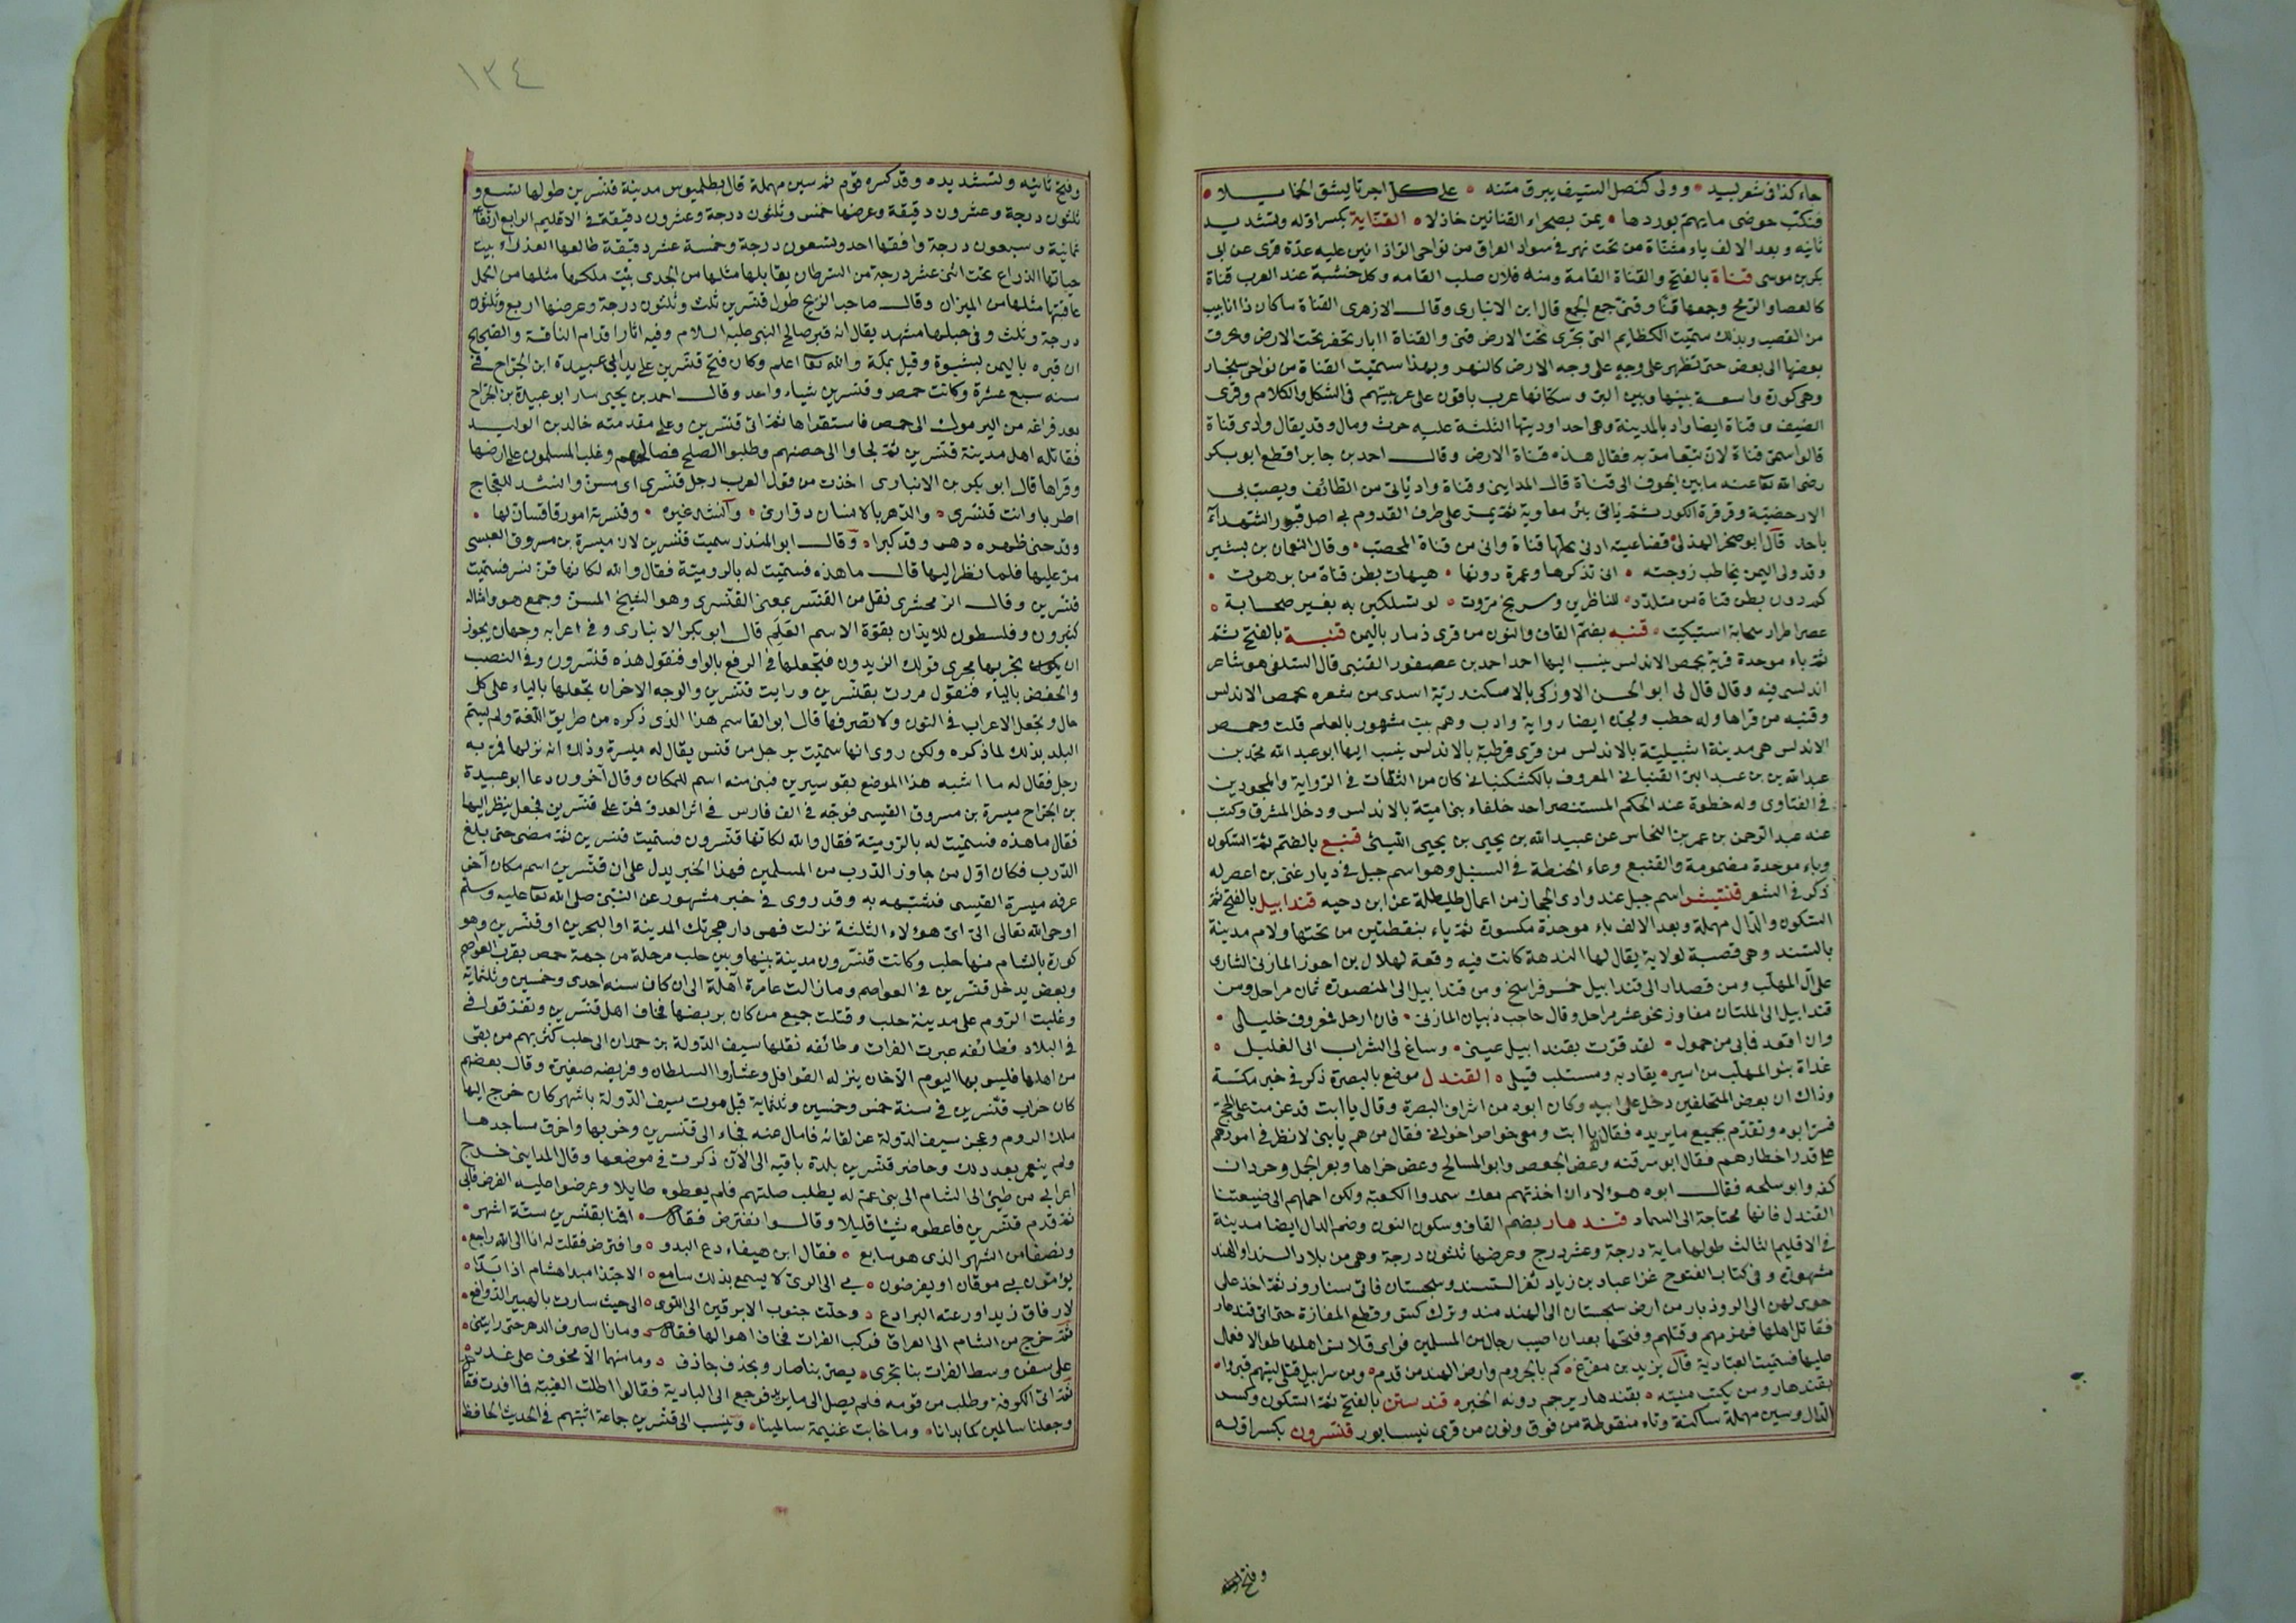 جاء كذا فى شعر لبيد وولى كنصل السيف يبرق متنه على كل اجريّا يشق الخمايلا
فنكب حوضى مايهم بوردها يمن بصحراء القنانين خاذلا القنّاية بكسر اوله وتشديد
ثانيه وبعد الالف ياء مثناة من تحت نهر فى سواد العراق من نواحى الراذانين عليه عدة قرى عن ابى
بكر بن موسى قناة بالفتح والقناة القامة ومنه فلان صلب القامه وكل خشبة عند العرب قناة
كالعصا والرمح وجمعها قنًا وقنى جمع الجمع قال ابن الانبارى وقال الازهرى القناة ماكان ذا انابيب
من القصب وبذلك سميت الكظايم التى تجرى تحت الارض قنى والقناة ابار تحفر تحت الارض ويخرق
بعضها الى بعض حتى تظهر على وجه على وجه الارض كالنهر وبهذا سميت القناة من نواحى سنجار
وهى كورة واسعة بينها وبين البر وسكانها عرب باقون على عربيتهم فى الشكل والكلام وقرى
الضيف وقناة ايضا واد بالمدينة وهى احد اوديتها الثلثة عليه حرث ومال وقد يقال وادى قناة
قالوا سمى قناة لان تبعا مر به فقال هذه قناة الارض وقال احمد بن جابر اقطع ابو بكر
رضى الله تعا عنه ما بين الجرف الى قناة قال المداينى وقناة واد يأتى من الطائف ويصب بى
الارحضيّة وقرقرة الكور ثم ياتى بئر معاوية ثم يمر على طرف القدوم بى اصل قبور الشهداء
باحد قال ابو صخر الهذلى قضاعيه ادنى محلها قناة وانى من قناة المحصب وقال النعمان بن بشير
وقد ولى اليمن يخاطب زوجته انى تذكرها وعمرة دونها هيهات بطن قناة من برهوت
كم دون بطن قناة من متلدد للناظرين وسربخ مروت لو تسلكين به بغير صحابة
عصرا طرار سحابة استبكيت قنبه بضم القاف والنون من قرى ذمار باليمن قنبة بالفتح ثم
ثم باء موحدة قرية بحمص الاندلس ينسب اليها احمد بن عصفور القنبى قال السلفى هو شاعر
اندلسى فيه وقال قال لى ابو الحسن الاوزكى بالاسكندرية اسدى من شعره بحمص الاندلس
وقنبه من قراها وله خطب ولجده ايضا رواية وادب وهم بيت مشهور بالعلم قلت وحمص
الاندلس هى مدينة اشبيلية بالاندلس من قرى قرطبة بالاندلس ينسب اليها ابو عبد الله محمد بن
عبد الله بن بن عبد البر القنبانى المعروف بالكشكينانى كان من الثقات فى الرواية والمجودين
فى الفتاوى وله خطوة عند الحكم المستنصر احد خلفاء بنى امية بالاندلس ودخل المشرق وكتب
عنه عبد الرحمن بن عمر بن النحاس عن عبيد الله بن يحيى بن يحيى الليثى قنبع بالضم ثم السكون
وباء موحدة مضمومة والقنبع وعاء الحنطة فى السنبل وهو اسم جبل فى ديار غنى بن اعصر له
ذكر فى الشعر قنتيش اسم جبل عند وادى الحجاز من اعمال طليطلة عن ابن دحيه قندابيل بالفتح ثم
السكون والدال مهملة وبعد الالف باء موحدة مكسورة ثم ياء بنقطتين من تحتها ولام مدينة
بالسند وهى قصبة لولاية يقال لها الندهة كانت فيه وقعة لهلال بن احوز المازنى الشارى
على آل المهلب ومن قصدار الى قندابيل خمس فراسخ ومن قندابيل الى المنصورة ثمان مراحل ومن
قندابيل الى الملتان مفاوز نحو عشر مراحل وقال حاجب ذبيان المازنى فان ارحل فمعروف خليلى
وان اقعد فابى من خمول لقد قرت بقندابيل عينى وساغ لى الشراب الى الغليل
غداة بنو المهلب من اسير يقاد به ومستلب قتيلى القندل موضع بالبصرة ذكر فى خبر مكتبة
وذاك ان بعض المتخلفين دخل على ابيه وكان ابوه من اشراف البصرة وقال يا ابت قد عزمت على الحج
فسر ابوه وتقدم بجميع ما يريده فقال يا ابت ومعى خواص اخوانى فقال من هم يا بنى لانظر فى امورهم
على قدر اخطارهم فقال ابو سرقنه وعض الجعص وابو المسالح وعض خراها وبعر الجمل وحردان
كفه وابو سلحه فقال ابوه هؤلاء ان اخذتهم معك سمدوا الكعبة ولكن احملهم الى ضيعتنا
القندل فانها محتاجة الى السماد قندهار بضم القاف وسكون النون وضم الدال ايضا مدينة
فى الاقليم الثالث طولها ماية درجة وعشر درج وعرضها ثلثون درجة وهى من بلاد السند او الهند
مشهورة وفى كتاب الفتوح غزا عباد بن زياد ثغر السند وسجستان فاتى سناروذ ثم اخذ على
حوى لهن الى الروذبار من ارض سجستان الى الهند مند وترك كس وقطع المفازة حتى اتى قندهار
فقاتل اهلها فهزمهم وقتلهم وفتحها بعد ان اصيب رجال من المسلمين فراى قلانس اهلها طوالا فعمل
عليها فسميت العبادية قال يزيد بن مفرغ كم بالجروم وارض الهند من قدم ومن سرابيل قتلى ليتهم قبروا
بقندهار ومن يكتب منيته بقندهار يرجم دونه الخبر قندستن بالفتح ثم السكون وكسر
الدال وسين مهملة ساكنة وتاء منقوطة من فوق ونون من قرى نيسابور قنسرون بكسر اوله
وفتح ثانيه
١٣٤
وفتح ثانيه وتشديده وقد كسره قوم ثم سين مهملة قال بطلميوس مدينة قنسرين طولها تسع و
ثلثون درجة وعشرون دقيقة وعرضها خمس وثلثون درجة وعشرون دقيقة فى الاقليم الرابع ارتفاعها
ثمانية وسبعون درجة وافقها احد وتسعون درجة وخمسة عشر دقيقة طالعها العذراء بيت
حياتها الذراع تحت اثنى عشر درجة من السرطان يقابلها مثلها من الجدى بيت ملكها مثلها من الحمل
عاقبتها مثلها من الميزان وقال صاحب الزيج طول قنسرين ثلث وثلثون درجة وعرضها اربع وثلثون
درجة وثلث وفى جبلها مشهد يقال انه قبر صالح النبى عليه السلام وفيه اثار اقدام الناقة والصحيح
ان قبره باليمن بشبوة وقيل بمكة والله تعا اعلم وكان فتح قنسرين على يد ابى عبيدة ابن الجراح فى
سنه سبع عشرة وكانت حمص وقنسرين شياء واحد وقال احمد بن يحيى سار ابو عبيدة بن الجراح
بعد فراغه من اليرموك الى حمص فاستقراها ثم اتى قنسرين وعلى مقدمته خالد بن الوليد
فقاتله اهل مدينة قنسرين ثم لجاوا الى حصنهم وطلبوا الصلح فصالحهم وغلب المسلمون على ارضها
وقراها قال ابو بكر بن الانبارى اخذت من قول العرب رجل قنسرى اى مسن وانشد للعجاج
اطربا وانت قنسرى والدهر بالانسان دوارى وانشد غيره وقنسرته امور فاقسأن لها
وقد حنى ظهره دهر وقد كبرا وقال ابو المنذر سميت قنسرين لان ميسرة بن مسروق العبسى
مر عليها فلما نظر اليها قال ما هذه فسميت له بالرومية فقال والله لكانها قن نسر فسميت
قنسرين وقال الزمخشرى نقل من القنسر بمعنى القنسرى وهو الشيخ المسن وجمع هو وامثاله
كثيرون وفلسطون للايذان بقوة الاسم العلم قال ابو بكر الانبارى وفى اعرابه وجهان يجوز
ان يكون تجريها مجرى قولك الزيدون فتجعلها فى الرفع بالواو فتقول هذه قنسرون وفى النصب
والخفض بالياء فتقول مررت بقنسرين ورايت قنسرين والوجه الاخر ان تجعلها بالياء على كل
حال وتجعل الاعراب فى النون ولا تصرفها قال ابو القاسم هذا الذى ذكره من طريق اللغة ولم يسم
البلد بذلك لما ذكره ولكن روى انها سميت برجل من قنس يقال له ميسرة وذلك انه نزلها فمر به
رجل فقال له ما اشبه هذا الموضع بقو سيرين فبنى منه اسم للمكان وقال آخرون دعا ابو عبيدة
بن الجراح ميسرة بن مسروق القيسى فوجه فى الف فارس فى اثر العدو فمر على قنسرين فجعل ينظر اليها
فقال ما هذه فسميت له بالرومية فقال والله لكانها قنسرون فسميت قنسرين ثم مضى حتى بلغ
الدرب فكان اول من جاوز الدرب من المسلمين فهذا الخبر يدل على ان قنسرين اسم مكان آخر
عرفه ميسرة القيسى فشبهه به وقد روى فى خبر مشهور عن النبى صلى الله تعا عليه وسلم
اوحى الله تعالى الى اى هؤلاء الثلثة نزلت فهى دار هجرتك المدينة او البحرين او قنسرين وهو
كورة بالشام منها حلب وكانت قنسرون مدينة بينها وبين حلب مرحلة من جهة حمص بقرب العواصم
وبعض يدخل قنسرين فى العواصم ومازالت عامرة آهلة الى ان كان سنه احدى وخمسين وثلثماية
وغلبت الروم على مدينة حلب وقتلت جميع من كان بربضها فخاف اهل قنسرين وتفرقوا فى
فى البلاد فطائفه عبرت الفرات وطائفه نقلها سيف الدولة بن حمدان الى حلب كثر بهم من بقى
من اهلها فليس بها اليوم الا خان ينزله القوافل وعشاروا السلطان وفريضه صغيرة وقال بعضهم
كان خراب قنسرين فى سنة خمس وخمسين وثلثماية قبل موت سيف الدولة باشهر كان خرج اليها
ملك الروم وعجز سيف الدولة عن لقائه فامال عنه فجاء الى قنسرين وخربها واحرق مساجدها
ولم يعمر بعد ذلك وحاضر قنسرين بلدة باقيه الى الآن ذكرت فى موضعها وقال المداينى خرج
اعرابى من طيئ الى الشام الى بنى عم له يطلب صلتهم فلم يعطوه طايلا وعرضوا عليه الفرض فابى
ثم قدم قنسرين فاعطوه شيئا قليلا وقالوا نفترض فقال اقمنا بقنسرين ستة اشهر
ونصفا من الشهر الذى هو سابع فقال ابن هيفاء دع البدو وافترض فقلت له انا الى الله راجع
يؤمون بى موقان او يفرضون بى الى الرى لا يسمع بذلك سامع الا حبذا مبدا هشام اذا بدا
لارفاق زيد او رعته البرادع وحلت جنوب الابرقين الى اللوى الى حيث سارت بالهبير الدوافع
ثم خرج من الشام الى العراق فركب الفرات فخاف اهوالها فقال ومازال صرف الدهر حتى رايتنى
على سفن وسط الفرات بنا تجرى يصير بنا صار ويجذف جاذف وما منهما الا مخوف على غدر
ثم اتى الكوفة وطلب من قومه فلم يصل الى ما يريد فرجع الى البادية فقالوا اطلت الغيبة فما افدت فقال
رجعنا سالمين كما بدانا وما خابت غنيمة سالمينا وينسب الى قنسرين جماعة اثبتهم فى الحديث الحافظ